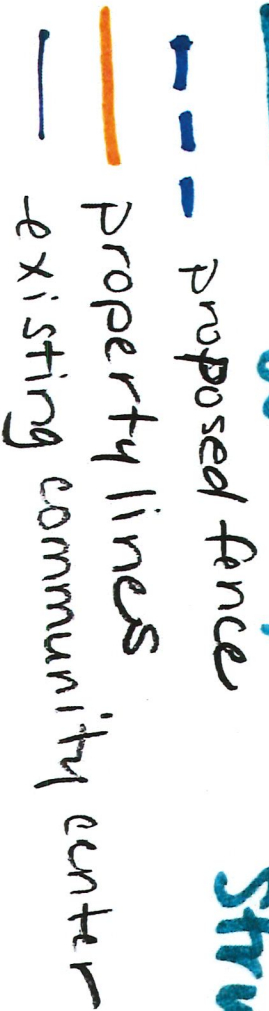 proposed fence
property lines
existing community center